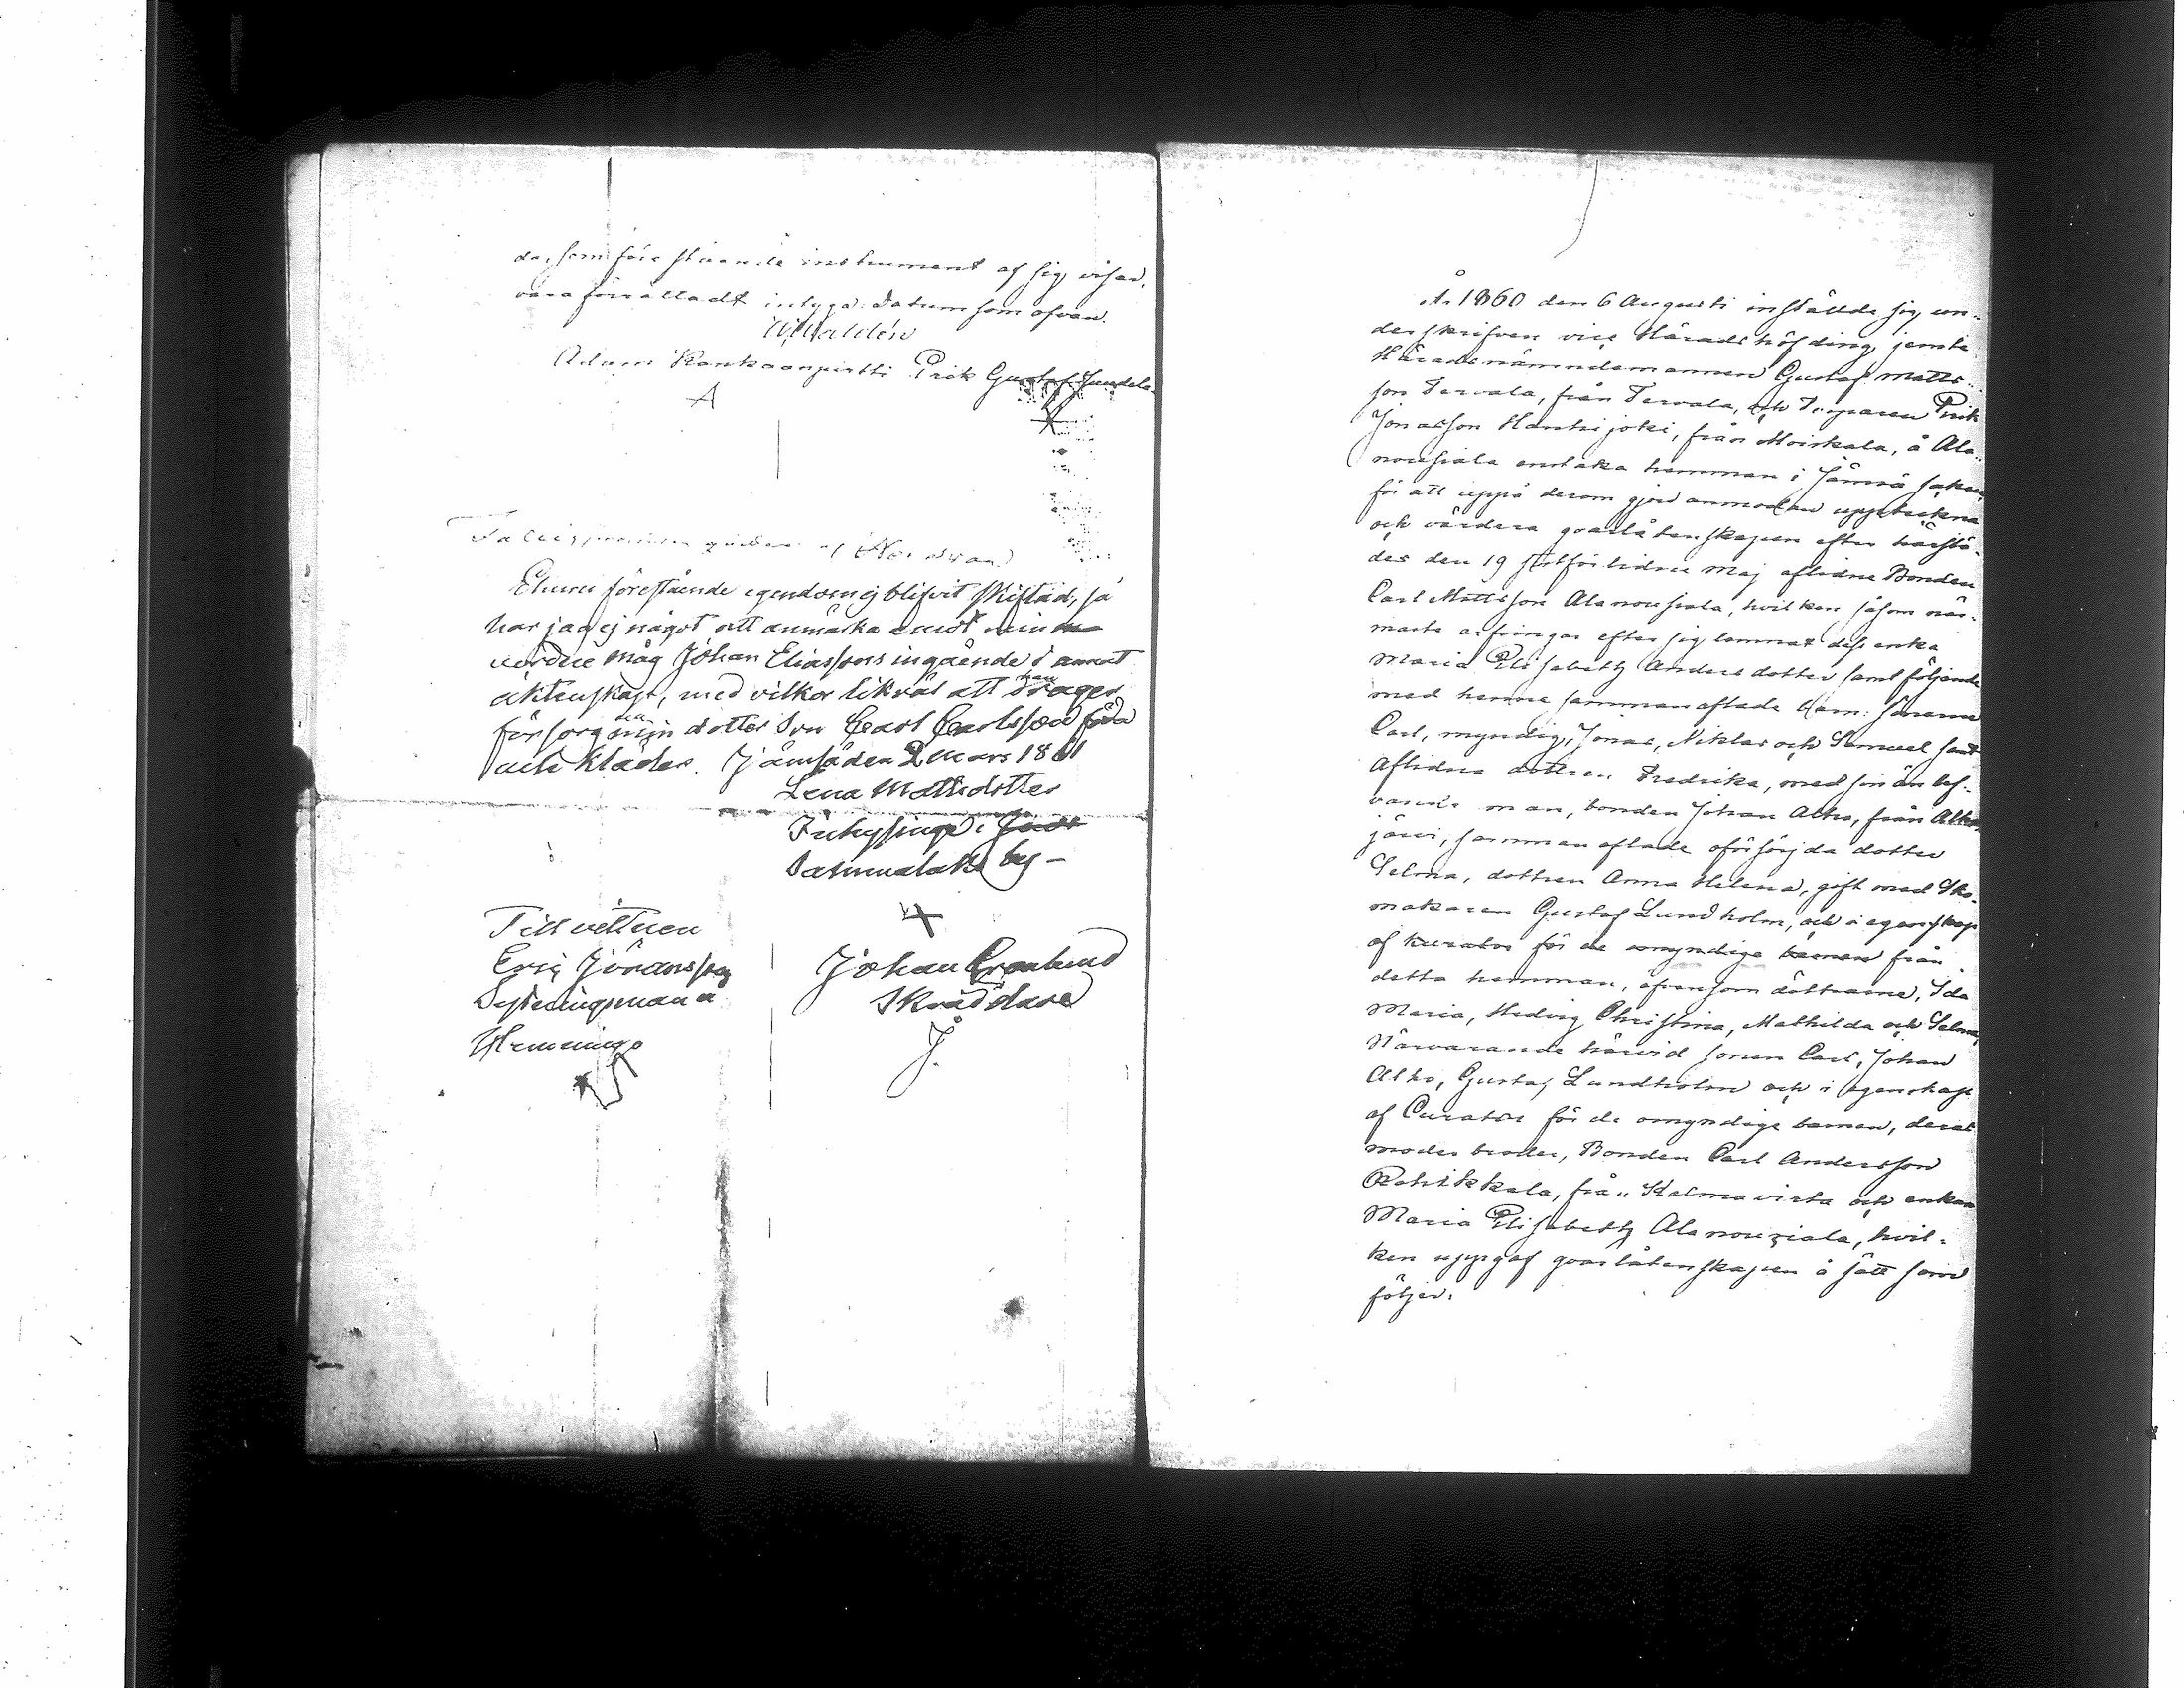 da, som före stående instrument af sig visar,
vara förrättadt intyga. Datum som ofvan.
Adam Kankaanpirtti Erik Gustaf
A
Ehuru förestående egendom ej blifvit skiftad, så
har jag ej något att anmärka emot min
värde måg Johan Eliassons ingående i annat
äktenskap, med vilkor likväl att han drager
försorg om min dotter Son Carl Carlsson föda
och kläder. Jämsä den 2 Mars 1861
Lena Mattsdotter
Inhysinge i
by -
Till vittnen
Eric Jöransson Johan Cronlund
Skräddare
Hemmingo
J.
År 1860 den 6 Augusti inställde sig un-
derskrifven vice Häradshöfding jemte
Häradsnämndemannen Gustaf Matts-
son Tervala, från Tervala, och Erik
Jonasson Hankijoki, från Moiskala, å Ala-
nousiala enstaka hemman i Jämsä Socken
för att uppå derom gjord anmodan uppteckna
och värdera qvarlåtenskapen efter härstä-
des den 19 sistförlidne Maj aflidne Bonden
Carl Mattsson Alanousiala, hvilken såsom när-
maste arfvingar efter sig lemnat dess enka
Maria Elisabeth Andersdotter samt följande
med henne sammanaflade barn: sönerne
Carl, myndig, Jonas, Niklas och Samuel samt
Aflidna dottren Fredrika, med sin än lef-
vande man, bonden Johan Alho, från Alho
järvi, sammanaflade oförsörjda dotter
Selma, dottren Anna Helena, gift med Sko-
makaren Gustaf Lundholm, och i egenskap
af kurator för de omyndige barnen från
detta hemman, äfvensom döttrarne, Ida
Maria, Hedvig Christina, Mathilda och Selma,
Närvarande härvid sonen Carl, Johan
Alho, Gustaf Lundholm och i egenskap
af Curator för de omyndige barnen, deras
moders broder, Bonden Carl Andersson
Rohikkala, från Kalmavirta och enkan
Maria Elisabeth Alanousiala, hvil-
ken uppgaf qvarlåtenskapen å sätt som
följer.